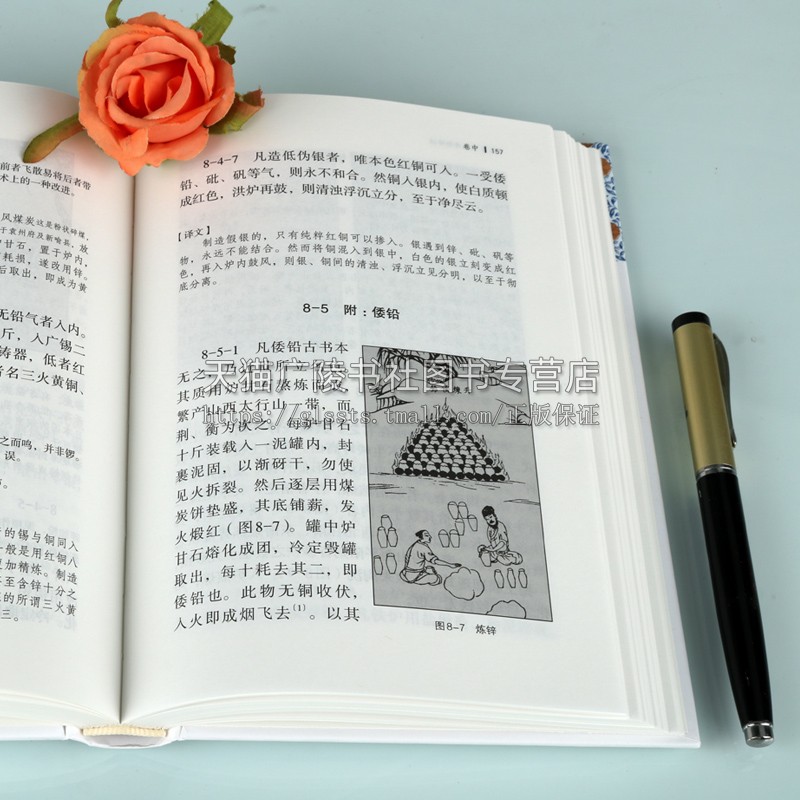 前者飞散易将后者带
术上的一种改进。
风煤炭这是粉状碎煤,
于袁州府及新喻县,放
甘石,置于炉内,
耗损,遂改用锌。
后取出,即成为黄
无铅气者入内。
斤,入广锡二
铸器,低者红
者名三火黄铜、
之而鸣,并非锣。
误。
8-4-5
的锡与铜同入
一般是用红铜八
更加精炼。制造
至含锌十分之
的所谓三火黄
三。
卷中 157
8-4-7 凡造低伪银者,唯本色红铜可入。一受倭
铅、砒、矾等气,则永不和合。然铜入银内,使白质顿
成红色,洪炉再鼓,则清浊浮沉立分,至于净尽云。
【译文】
制造假银的,只有纯粹红铜可以掺入。银遇到锌、砒、矾等
物,永远不能结合。然而将铜混入到银中,白色的银立刻变成红
色,再入炉内鼓风,则银、铜间的清浊、浮沉立见分明,以至于彻
底分离。
8-5 附:倭铅
8-5-1 凡倭铅古书本
无之,乃近世所立名色。
其质用炉甘石熬炼而成,
繁产山西太行山一带,而
荆、衡为次之。每炉甘石
十斤装载入一泥罐内,封
裹泥固,以渐砑干,勿使
见火拆裂。然后逐层用煤
炭饼垫盛,其底铺薪,发
火煅红(图8-7)。罐中炉
甘石熔化成团,冷定毁罐
取出,每十耗去其二,即
倭铅也。此物无铜收伏,
入火即成烟飞去[1]。以其
图8-7 炼锌
天猫广陵书社图书专营店
https://glssts.tmall.com/正版保证